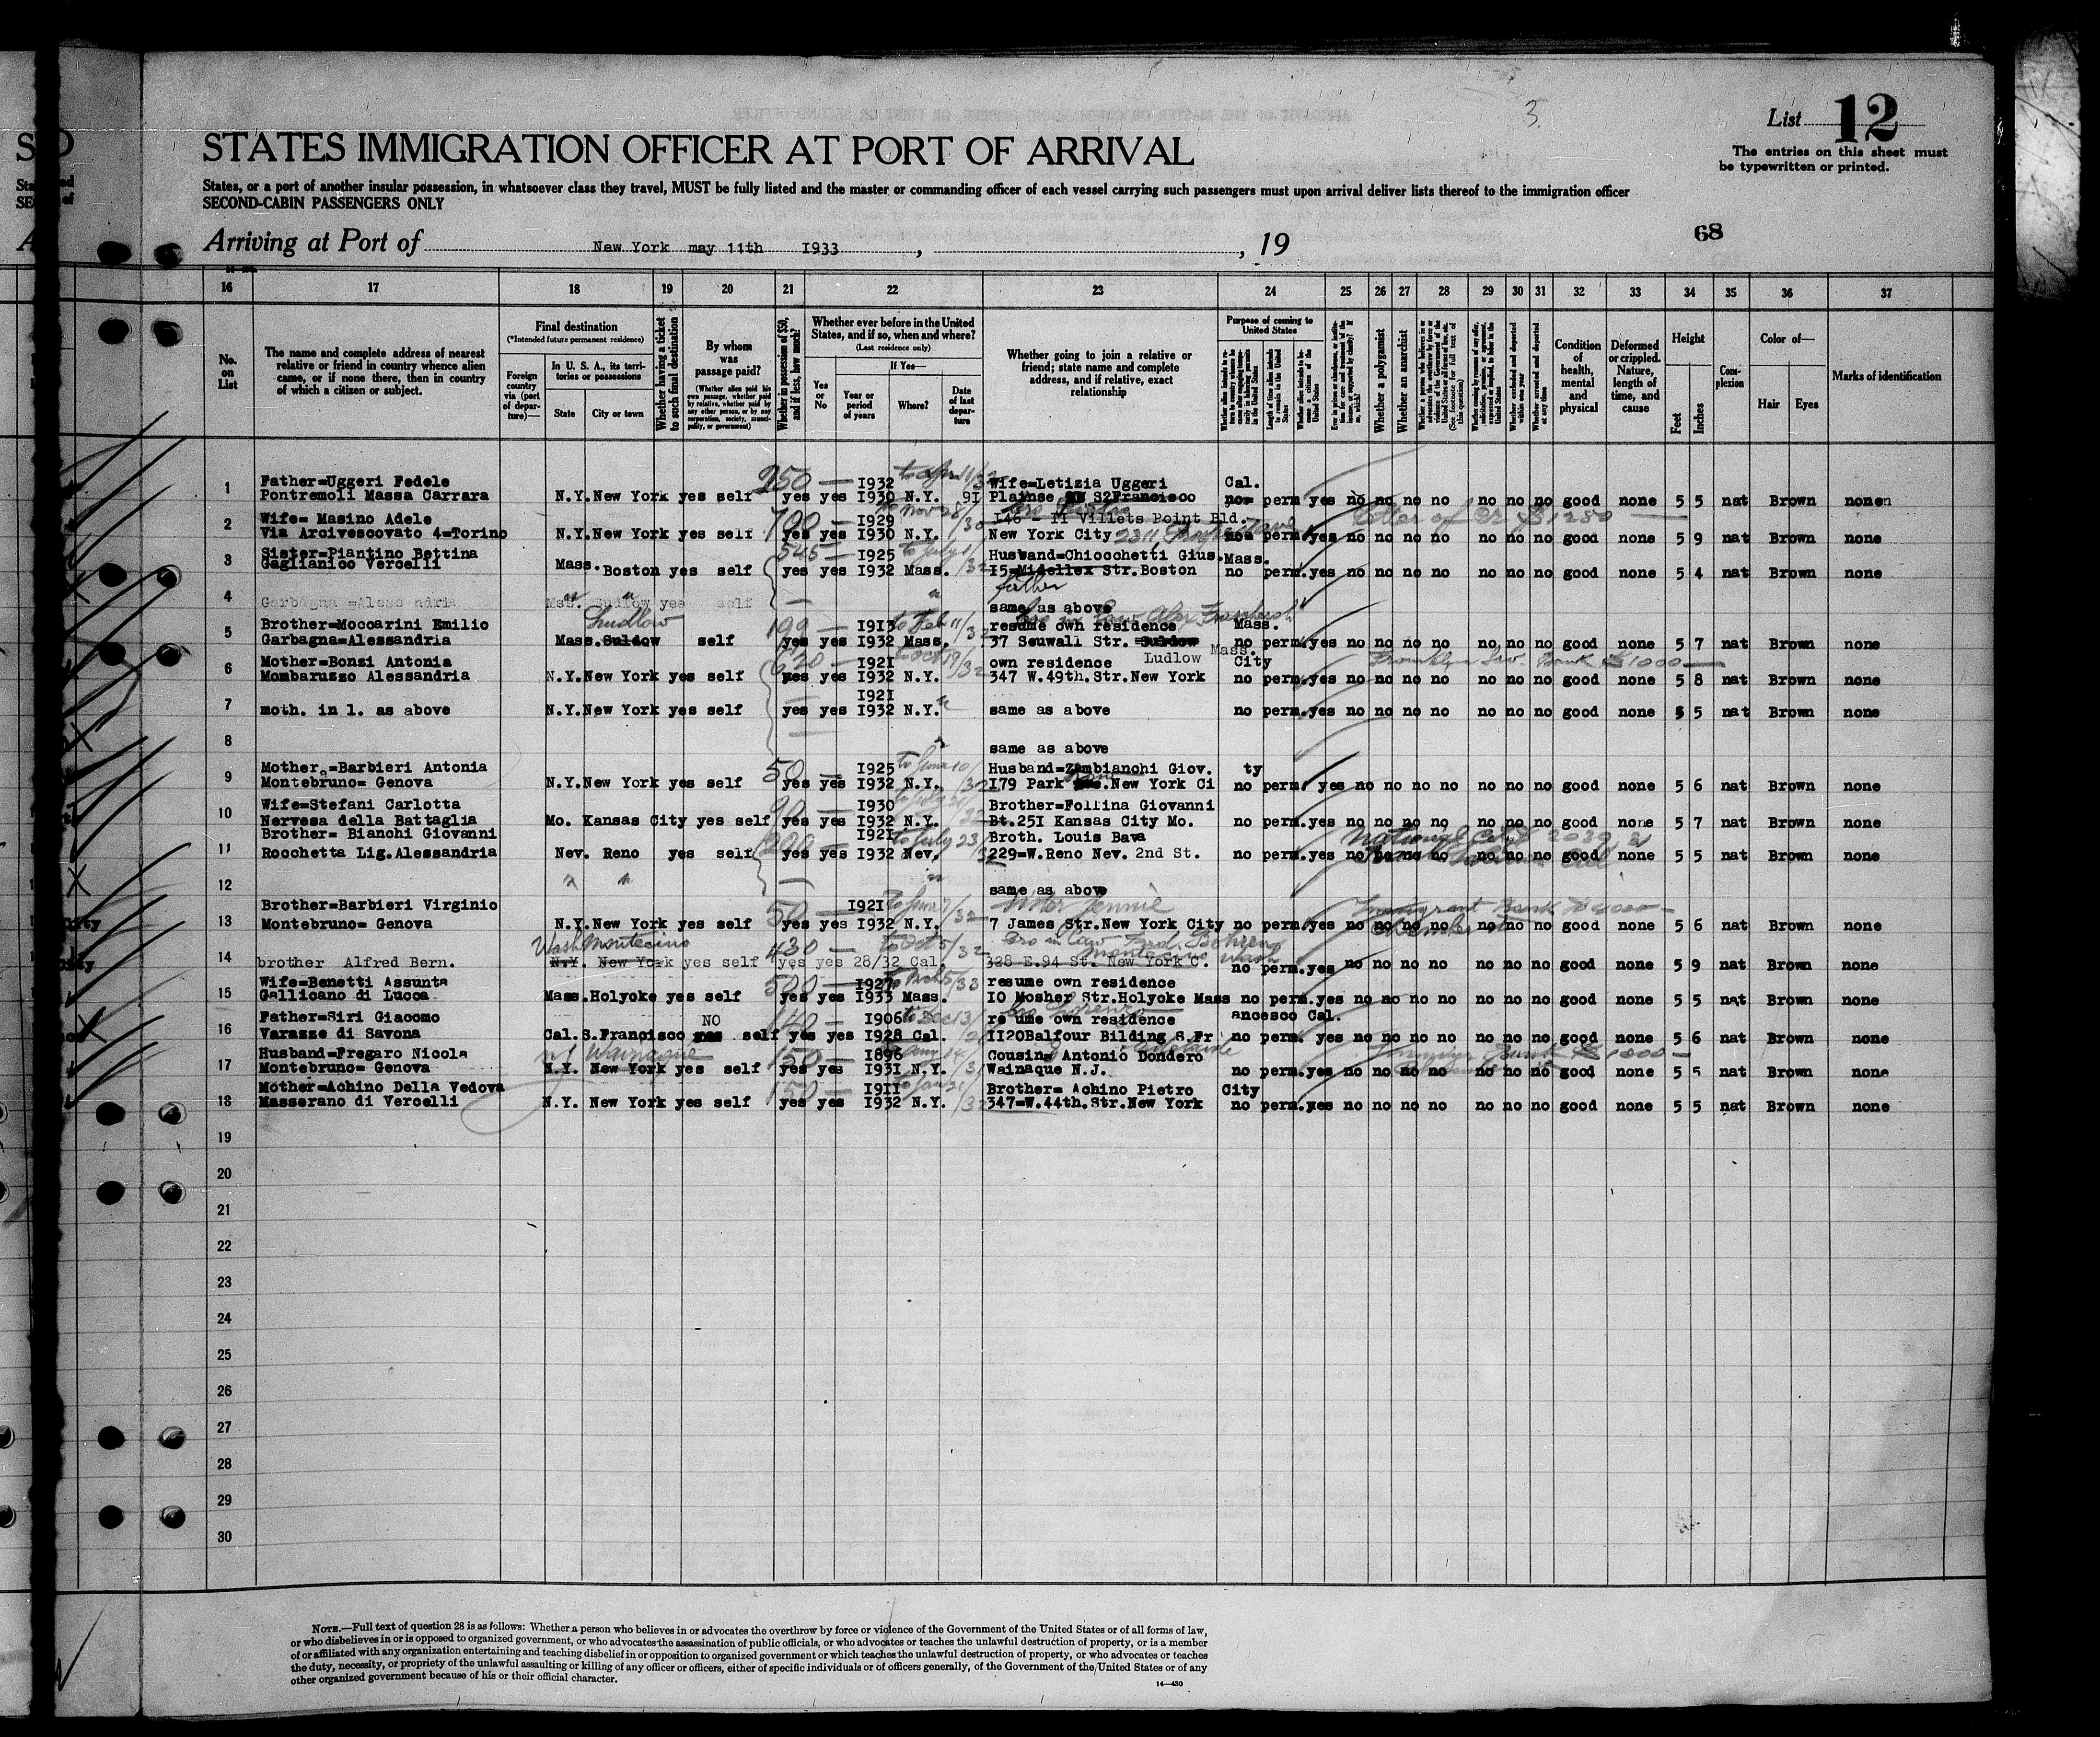 3.
List 12
STATES IMMIGRATION OFFICER AT PORT OF ARRIVAL
The entries on this sheet must
be typewritten or printed.
States, or a port of another insular possession, in whatsoever class they travel, MUST be fully listed and the master or commanding officer of each vessel carrying such passengers must upon arrival deliver lists thereof to the immigration officer
SECOND-CABIN PASSENGERS ONLY
Arriving at Port of New York may 11th 1933 , , 19
68
16 17 18 19 20 21 22 23 24 25 26 27 28 29 30 31 32 33 34 35 36 37
No.
on
List
The name and complete address of nearest
relative or friend in country whence alien
came, or if none there, then in country
of which a citizen or subject.
Final destination
(*Intended future permanent residence)
Foreign
country
via (port
of depar-
ture)—
In U. S. A., its terri-
tories or possessions
State City or town
Whether having a ticket
to such final destination
By whom
was
passage paid?
(Whether alien paid his
own passage, whether paid
by relative, whether paid by
any other person, or by any
corporation, society, munici-
pality, or government)
Whether in possession of $50,
and if less, how much?
Whether ever before in the United
States, and if so, when and where?
(Last residence only)
Yes
or
No
If Yes—
Year or
period
of years
Where?
Date
of last
depar-
ture
Whether going to join a relative or
friend; state name and complete
address, and if relative, exact
relationship
Purpose of coming to
United States
Length of time alien intends
to remain in the United
States
Whether alien intends to be-
come a citizen of the
United States
Whether a polygamist
Whether an anarchist
Whether arrested and deported
at any time
Condition
of
health,
mental
and
physical
Deformed
or crippled.
Nature,
length of
time, and
cause
Height
Feet
Inches
Com-
plexion
Color of—
Hair Eyes
Marks of identification
Father=Uggeri Fedele 250 — 1932 Wife=Letizia Uggeri Cal.
1 Pontremoli Massa Carrara N.Y. New York yes self yes yes 1930 N.Y. 91 Plainse S2Francisco no perm yes no no no no no no no good none 5 5 nat Brown none
Wife= Masino Adele 1929 to Nov 28/30 146 - 11 Villets Point Bld. Letter of Cr $1280 —
2 Via Arcivescovato 4=Torino N.Y. New York yes self yes yes 1930 N.Y. New York City 2311 no perm. yes no no no no no no no good none 5 9 nat Brown none
Sister=Piantino Bettina 545 — 1925 to July Husband=Chiocchetti Gius. Mass.
3 Gaglianico Vercelli Mass. Boston yes self yes yes 1932 Mass. 15=Midellex Str. Boston no perm. yes no no no no no no no good none 5 4 nat Brown none
father
4 Garbagna =Alessandria Mss. Sudlow yes self — " same as above
Brother=Moccarini Emilio Ludlow 199 — 1913 to Feb 11/32 resume own residence Mass.
5 Garbagna=Alessandria Mass. Suldow self yes yes 1932 Mass. 37 Seuwall Str. Suldow no perm. yes no no no no no no no good none 5 7 nat Brown none
Mother=Bonzi Antonia 620 — 1921 to Oct 19/32 own residence Ludlow Mass. City Franklin Sav. Bank $1000 —
6 Mombaruzzo Alessandria N.Y. New York yes self yes yes 1932 N.Y. 347 W.49th.Str.New York no perm. yes no no no no no no no good none 5 8 nat Brown none
1921
7 moth. in l. as above N.Y. New York yes self yes yes 1932 N.Y. " same as above no perm. yes no no no no no no no good none 5 5 nat Brown none
8 " same as above
Mother.=Barbieri Antonia 50 — 1925 to June 10/32 Husband=Zambianchi Giov. ty
9 Montebruno= Genova N.Y. New York yes self yes yes 1932 N.Y. 179 Park New York Ci no perm. yes no no no no no no no good none 5 6 nat Brown none
Wife=Stefani Carlotta 90 — 1930 Brother=Follina Giovanni
10 Nervesa della Battaglia Mo. Kansas City yes self yes yes 1932 N.Y. Bt.251 Kansas City Mo. no perm. yes no no no no no no no good none 5 7 nat Brown none
Brother= Bianchi Giovanni 200 — 1921 to July 23/32 Broth. Louis Bava National City 2039
11 Rocchetta Lig.Alessandria Nev. Reno yes self yes yes 1932 Nev. 229=W.Reno Nev. 2nd St. no perm. yes no no no no no no no good none 5 5 nat Brown none
12 " " — " same as above
Brother=Barbieri Virginio 50 — 1921 to June 7/32 Sister Jennie Immigrant Bank $4000 —
13 Montebruno= Genova N.Y. New York yes self yes yes 1932 N.Y. 7 James Str.New York City no perm. yes no no no no no no no good none 5 6 nat Brown none
Wash Montecino 430 — to Oct 5/32 bro in law Ferd. Behrens Montecino Wash
14 brother Alfred Bern. N.Y. New York yes self yes yes 28/32 Cal. 328 E.94 St. New York C. no perm. yes no no no no no no no good none 5 9 nat Brown none
Wife=Benetti Assunta 500 — 1927 to Mch 5/33 resume own residence
15 Gallicano di Lucca Mass. Holyoke yes self yes yes 1933 Mass. 10 Mosher Str.Holyoke Mass no perm. yes no no no no no no no good none 5 5 nat Brown none
Father=Siri Giacomo NO 140 — 1906 to Dec 13/ re ume own residence ancesco Cal.
16 Varazze di Savona Cal. S.Francisco yes self yes yes 1928 Cal. 1120Balfour Bilding S.Fr no perm. yes no no no no no no no good none 5 6 nat Brown none
Husband=Fregaro Nicola nj Wainaque 150 — 1896 Cousin= Antonio Dondero Bank $1000 —
17 Montebruno= Genova N.Y. New York yes self yes yes 1931 N.Y. Wainaque N.J. no perm. yes no no no no no no no good none 5 5 nat Brown none
Mother=Achino Della Vedova 150 — 1911 to Jan 21/32 Brother= Achino Pietro City
18 Masserano di Vercelli N.Y. New York yes self yes yes 1932 N.Y. 347=W.44th.Str.New York no perm. yes no no no no no no no good none 5 5 nat Brown none
19
20
21
22
23
24
25
26
27
28
29
30
NOTE.—Full text of question 28 is as follows: Whether a person who believes in or advocates the overthrow by force or violence of the Government of the United States or of all forms of law,
or who disbelieves in or is opposed to organized government, or who advocates the assassination of public officials, or who advocates or teaches the unlawful destruction of property, or is a member
of or affiliated with any organization entertaining and teaching disbelief in or opposition to organized government or which teaches the unlawful destruction of property, or who advocates or teaches
the duty, necessity, or propriety of the unlawful assaulting or killing of any officer or officers, either of specific individuals or of officers generally, of the Government of the United States or of any
other organized government because of his or their official character.
14—430